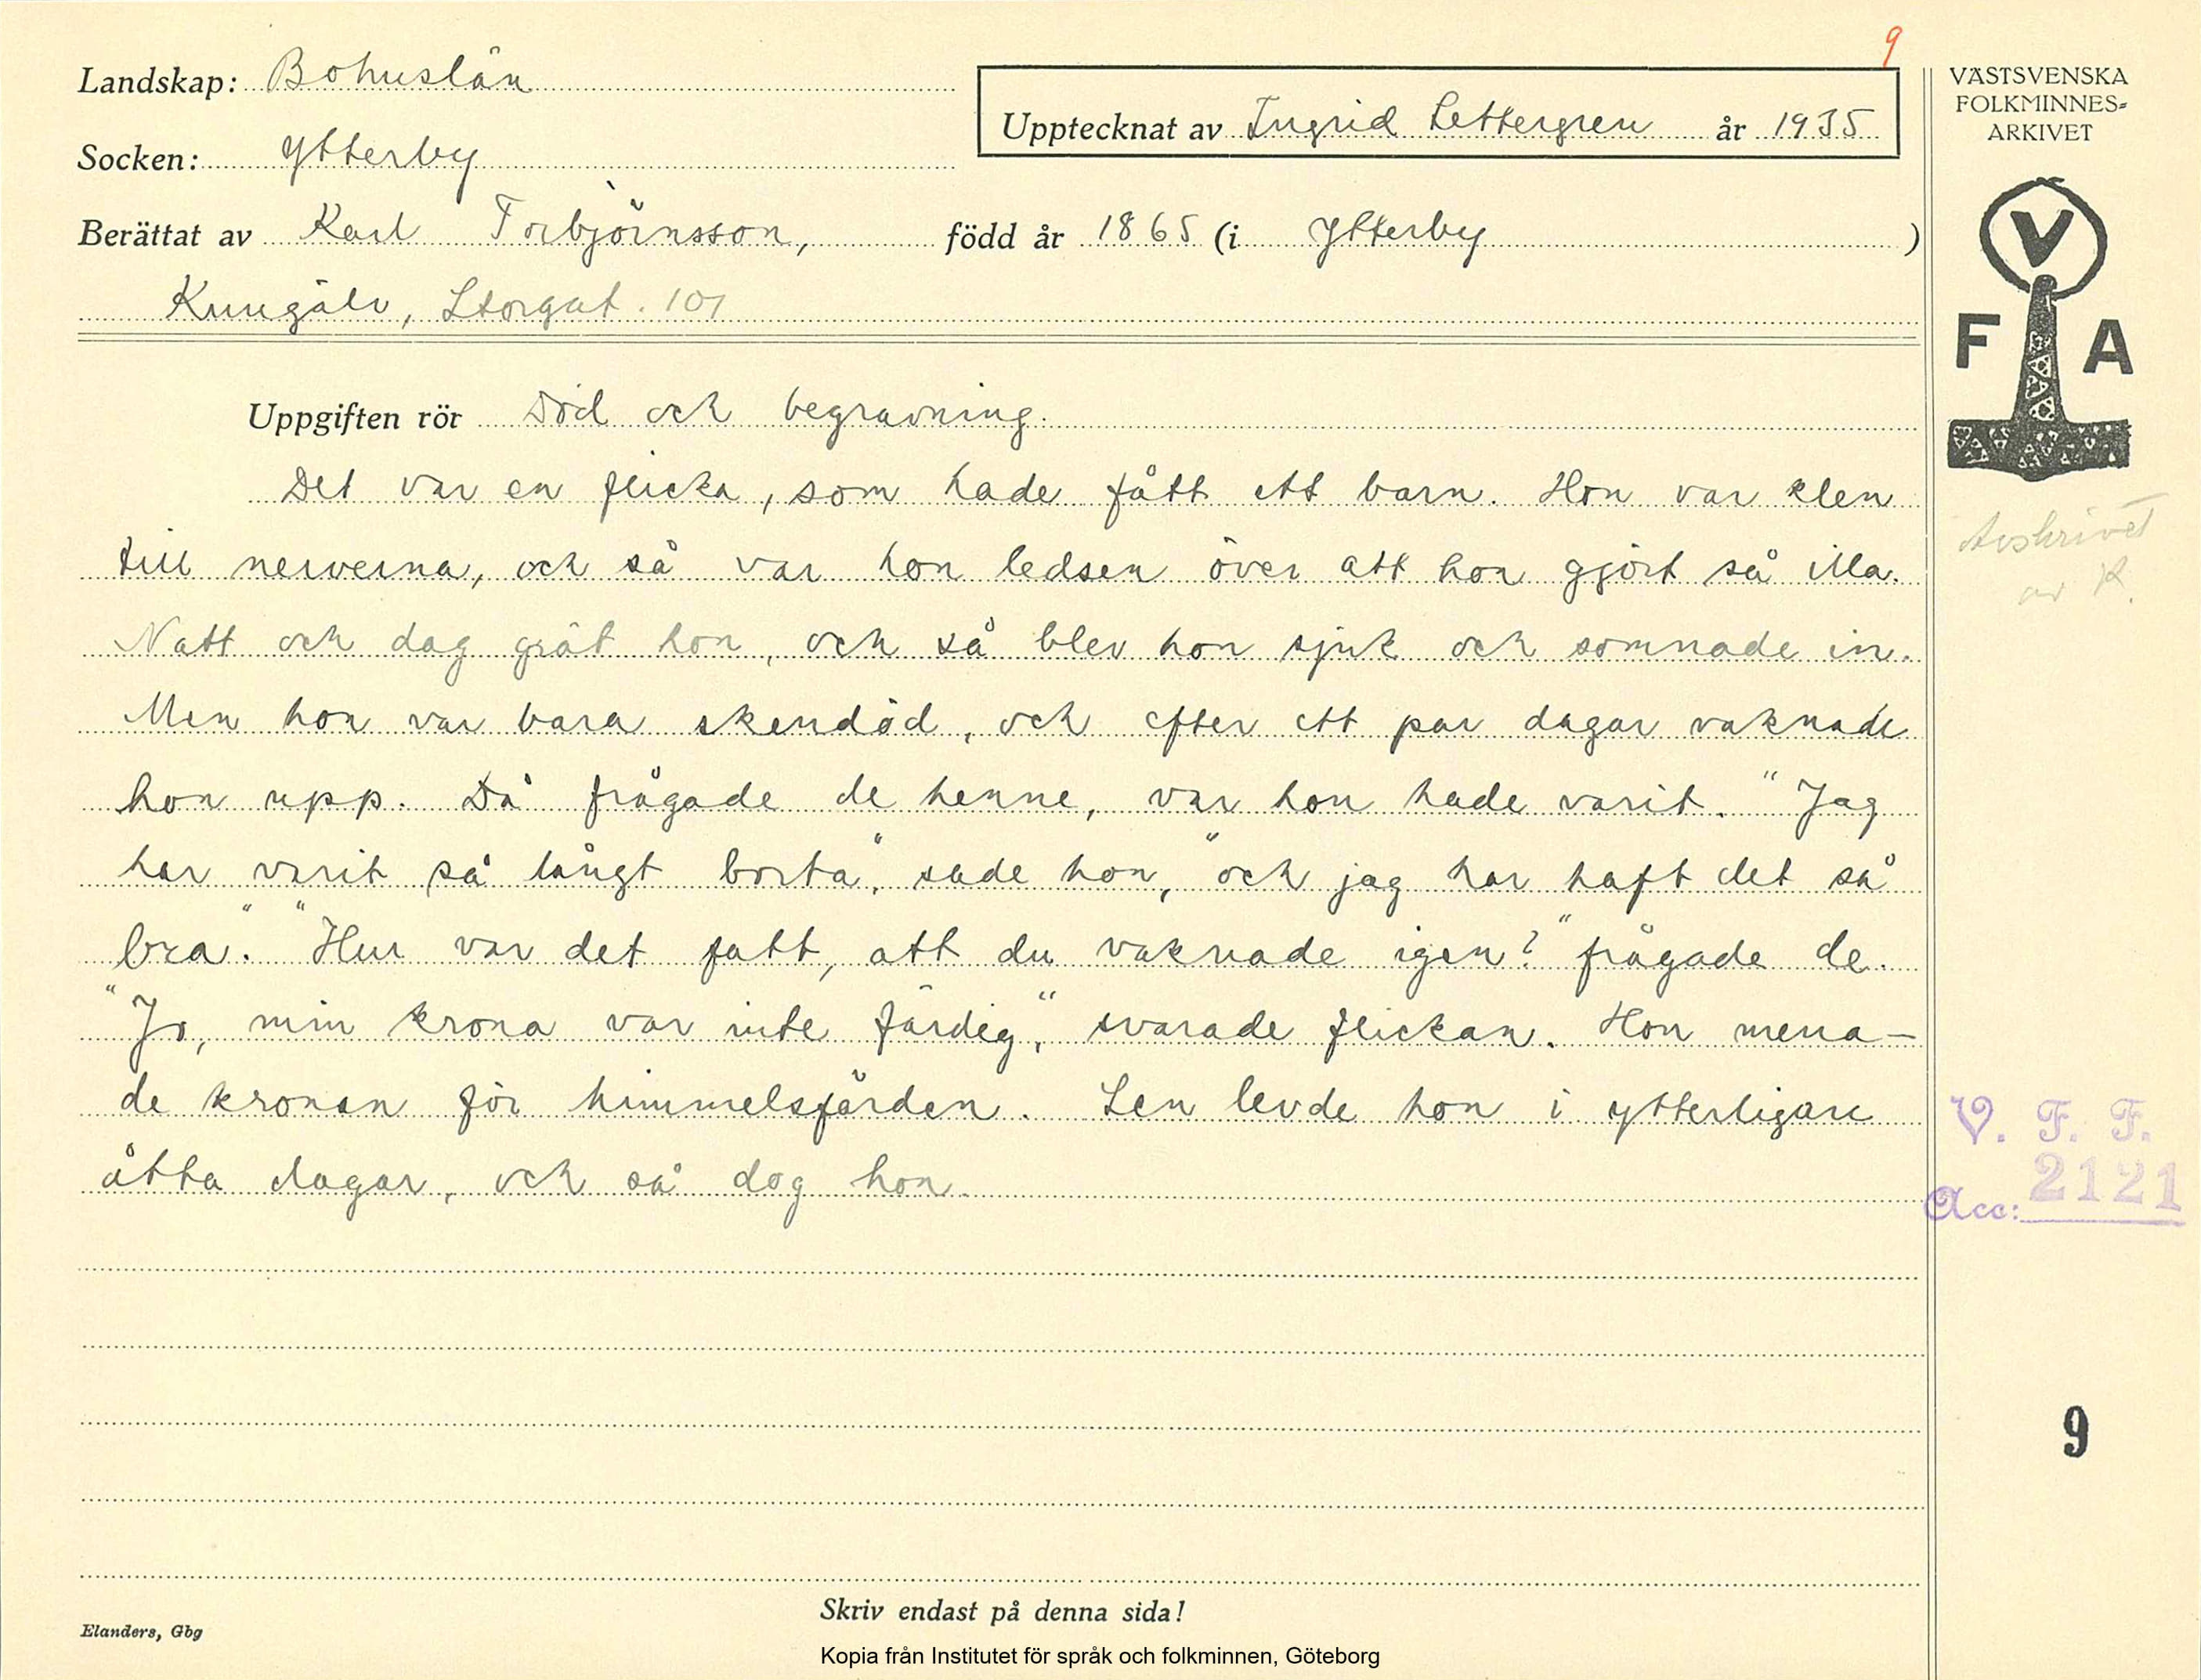 9
Landskap: Bohuslän
Upptecknat av Ingrid Settergren år 1935
Socken: Ytterby
Berättat av Karl Torbjörnsson, född år 1865 (i Ytterby )
Kungälv, Storgat. 101
VÄSTSVENSKA
FOLKMINNES-
ARKIVET
V
F A
Uppgiften rör Död och begravning.
Det var en flicka, som hade fått ett barn. Hon var klen
till nerverna, och så var hon ledsen över att hon gjort så illa.
Natt och dag grät hon, och så blev hon sjuk och somnade in.
Men hon var bara skendöd, och efter ett par dagar vaknade
hon upp. Då frågade de henne, var hon hade varit. "Jag
har varit så långt borta", sade hon, "och jag har haft det så
bra." "Hur var det fatt, att du vaknade igen?" frågade de.
"Jo, min krona var inte färdig," svarade flickan. Hon mena-
de kronan för himmelsfärden. Sen levde hon i ytterligare
åtta dagar, och så dog hon.
Avskrivet
av R.
V. F. F.
Acc: 2121
9
Skriv endast på denna sida!
Elanders, Gbg
Kopia från Institutet för språk och folkminnen, Göteborg